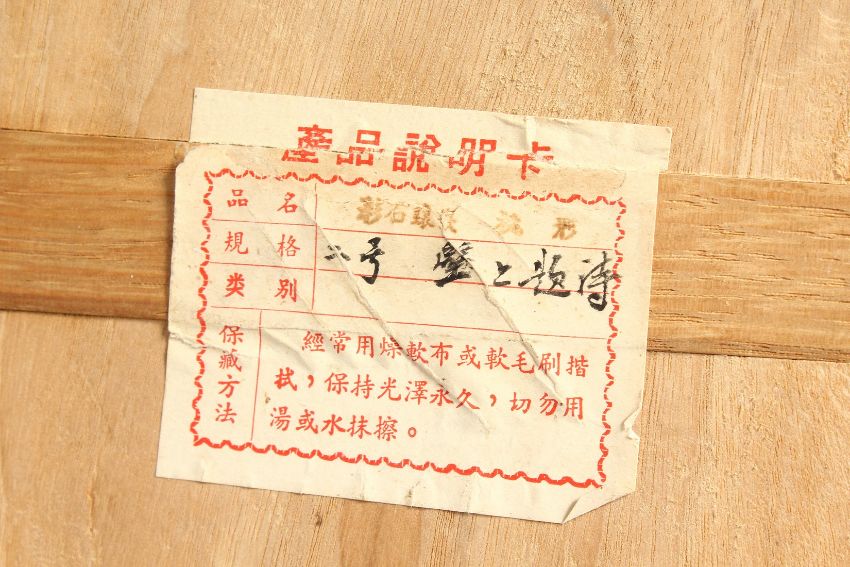 產品說明卡
品名 彩石鑲嵌 形
規格 二号 壁上题诗
类别
保藏方法 經常用燥軟布或軟毛刷揩
拭，保持光澤永久，切勿用
湯或水抹擦。